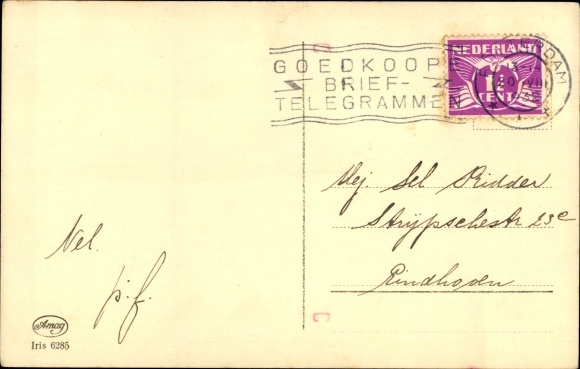 GOEDKOOP
BRIEF-
TELEGRAMMEN
NEDERLAND
1½
CENT
Mej. Sel Ridder
Strijpschestr 23c
Eindhoven
Nel.
p.f.
Amag
Iris 6285